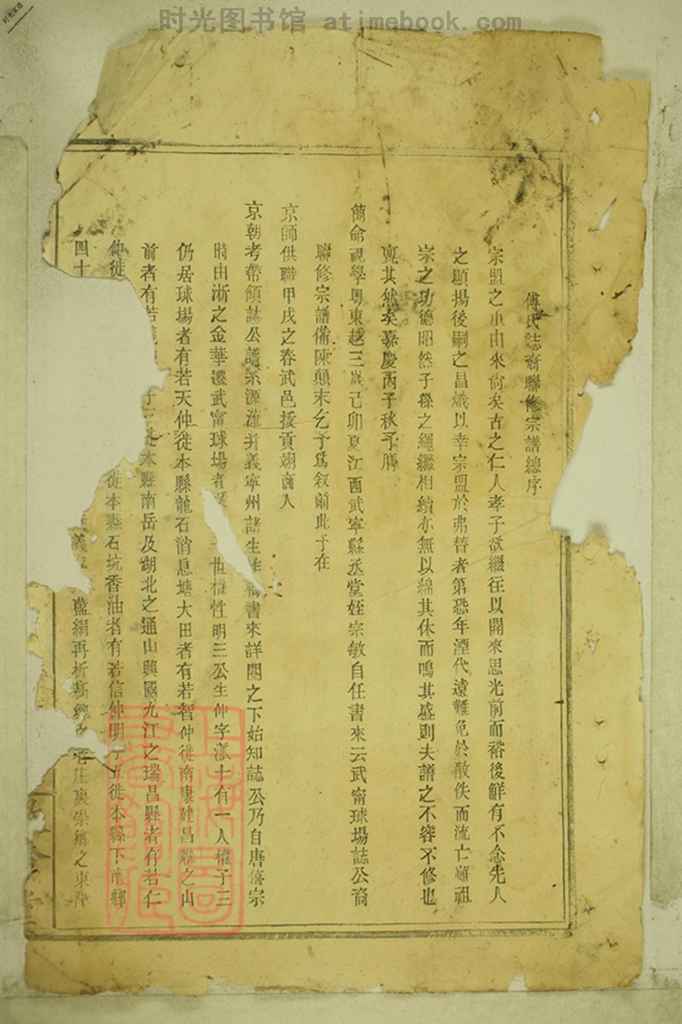 时光图书馆 atimebook.com
傅氏誌裔聯修宗譜總序
宗盟之由來尚矣古之仁人孝子欲繼往以開來思光前而裕後鮮有不念先人
之顯揚後嗣之昌熾以幸宗盟於弗替者第恐年湮代遠難免於散佚而流亡雖祖
宗之功德昭然子孫之繩繼相續亦無以綿其休而鳴其盛則夫譜之不容不修也
寔其然矣嘉慶丙子秋予膺
簡命視學粵東越三歲己卯夏江西武寧縣丞堂姪宗敏自任書來云武甯球場誌公裔
聯修宗譜備陳顛末乞予爲叙前此予在
京師供職甲戌之春武邑拔貢朔南入
京朝考帶領誌公譜系源流并義寧州諸生書來詳閱之下始知誌公乃自唐僖宗
時由浙之金華遷武甯球場者世權性明三公生仲字派十有一人權子三
仍居球場者有若天仲徙本縣龍石消息塘大田者有若智仲徙南康建昌縣之山
前者有若徙本縣南岳及湖北之通山興國九江之瑞昌縣者有若仁
仲徙徙本縣石坑香油者有若信仲明子五徙本縣下南鄉
四十義藍綱再析